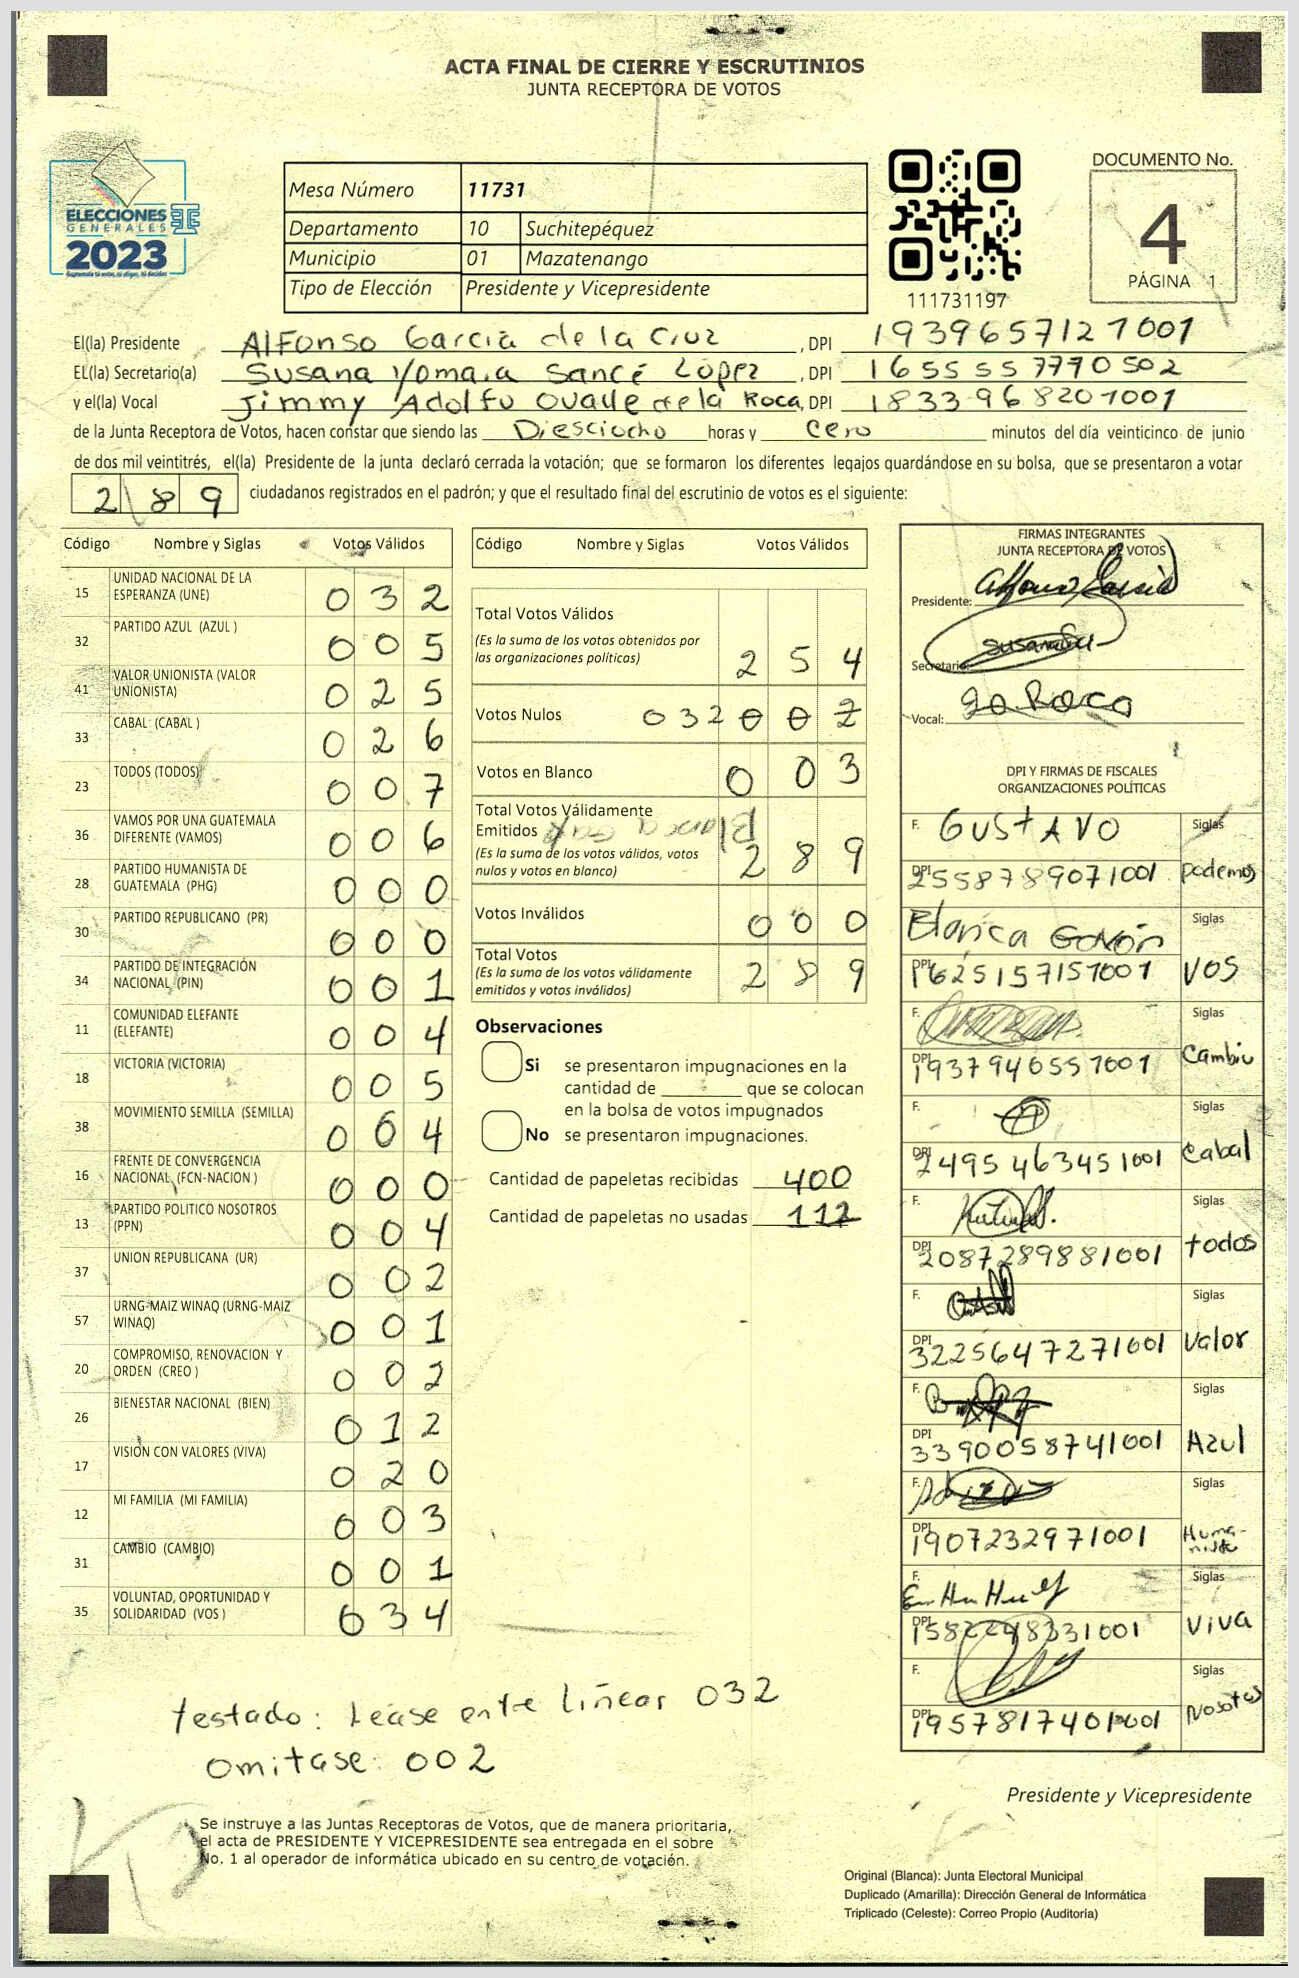 ACTA FINAL DE CIERRE Y ESCRUTINIOS
JUNTA RECEPTORA DE VOTOS
ELECCIONES
GENERALES
2023
Mesa Número 11731
Departamento 10 Suchitepéquez
Municipio 01 Mazatenango
Tipo de Elección Presidente y Vicepresidente
111731197
DOCUMENTO No.
4
PÁGINA 1
El(la) Presidente Alfonso García de la Cruz, DPI 1939657127001
EL(la) Secretario(a) Susana Yomara Sancé López, DPI 1655557770502
y el(la) Vocal Jimmy Adolfo Ovalle de la Roca, DPI 1833968201001
de la Junta Receptora de Votos, hacen constar que siendo las Diesciocho horas y cero minutos del día veinticinco de junio
de dos mil veintitrés, el(la) Presidente de la junta declaró cerrada la votación; que se formaron los diferentes legajos guardándose en su bolsa, que se presentaron a votar
289 ciudadanos registrados en el padrón; y que el resultado final del escrutinio de votos es el siguiente:
Código Nombre y Siglas Votos Válidos
15 UNIDAD NACIONAL DE LA ESPERANZA (UNE) 032
32 PARTIDO AZUL (AZUL ) 005
41 VALOR UNIONISTA (VALOR UNIONISTA) 025
33 CABAL (CABAL ) 026
23 TODOS (TODOS) 007
36 VAMOS POR UNA GUATEMALA DIFERENTE (VAMOS) 006
28 PARTIDO HUMANISTA DE GUATEMALA (PHG) 000
30 PARTIDO REPUBLICANO (PR) 000
34 PARTIDO DE INTEGRACIÓN NACIONAL (PIN) 001
11 COMUNIDAD ELEFANTE (ELEFANTE) 004
18 VICTORIA (VICTORIA) 005
38 MOVIMIENTO SEMILLA (SEMILLA) 064
16 FRENTE DE CONVERGENCIA NACIONAL (FCN-NACION ) 000
13 PARTIDO POLITICO NOSOTROS (PPN) 004
37 UNION REPUBLICANA (UR) 002
57 URNG-MAIZ WINAQ (URNG-MAIZ WINAQ) 001
20 COMPROMISO, RENOVACION Y ORDEN (CREO ) 002
26 BIENESTAR NACIONAL (BIEN) 012
17 VISION CON VALORES (VIVA) 020
12 MI FAMILIA (MI FAMILIA) 003
31 CAMBIO (CAMBIO) 001
35 VOLUNTAD, OPORTUNIDAD Y SOLIDARIDAD (VOS ) 034
Código Nombre y Siglas Votos Válidos
Total Votos Válidos 254
(Es la suma de los votos obtenidos por
las organizaciones políticas)
Votos Nulos 032 002
Votos en Blanco 003
Total Votos Válidamente
Emitidos 289
(Es la suma de los votos válidos, votos
nulos y votos en blanco)
Votos Inválidos 000
Total Votos 289
(Es la suma de los votos válidamente
emitidos y votos inválidos)
Observaciones
Si se presentaron impugnaciones en la
cantidad de ________ que se colocan
en la bolsa de votos impugnados
No se presentaron impugnaciones.
Cantidad de papeletas recibidas 400
Cantidad de papeletas no usadas 112
FIRMAS INTEGRANTES
JUNTA RECEPTORA DE VOTOS
Presidente: Alfonso García
Secretario:
Vocal: La Roca
DPI Y FIRMAS DE FISCALES
ORGANIZACIONES POLÍTICAS
F. GUSTAVO Siglas
DPI 2558789071001 podemos
F. Blanca Siglas
DPI 1625157157001 VOS
F. Siglas
DPI 1937940557001 Cambio
F. Siglas
DPI 2495463451001 Cabal
F. Siglas
DPI 2087289881001 todos
F. Siglas
DPI 3225647271001 Valor
F. Siglas
DPI 3390058741001 Azul
F. Siglas
DPI 1907232971001 Huma-
nista
F. Siglas
DPI 1582248331001 Viva
F. Siglas
DPI 1957817401001 Nosotros
testado: Léase entre líneas 032
Omitase: 002
Presidente y Vicepresidente
Se instruye a las Juntas Receptoras de Votos, que de manera prioritaria,
el acta de PRESIDENTE Y VICEPRESIDENTE sea entregada en el sobre
No. 1 al operador de informática ubicado en su centro de votación.
Original (Blanca): Junta Electoral Municipal
Duplicado (Amarilla): Dirección General de Informática
Triplicado (Celeste): Correo Propio (Auditoría)